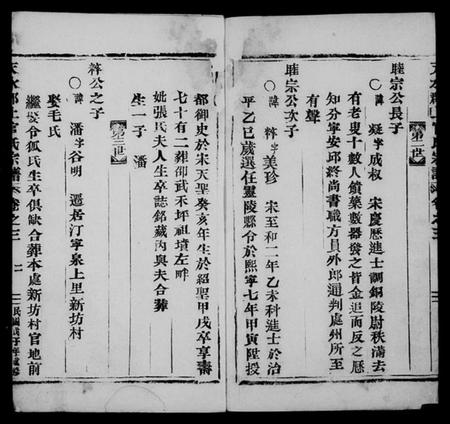 第二世
睦宗公長子
○諱凝字成叔 宋慶歷進士調銅陵尉秩滿去
有老叟十數人饋藥數器發之皆金追而反之歷
知芬寧安邱終尚書職方員外郎通判處州所至
有聲
睦宗公次子
○諱粹字美珍 宋至和二年乙未科進士於治
平乙巳歲選任靈陵縣令於熙寧七年甲寅陞授
都御史於宋天聖癸亥年生於紹聖甲戌卒享壽
七十有二葬邵武禾坪祖墳左畔
妣張氏夫人生卒誌銘藏內與夫合葬
生一子 潘
第三世
粹公之子
○諱潘字谷明 遷居汀寧泉上里新坊村
娶毛氏
繼娶令狐氏生卒俱缺合葬本處新坊村官地前